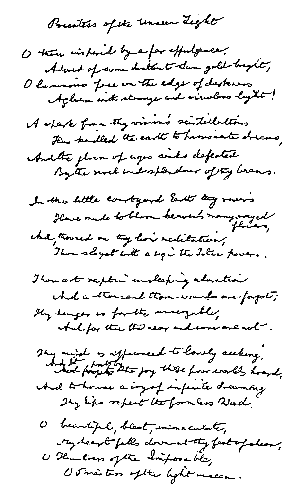 Priestess of the Unseen Light
O thou inspired by a far effulgence,
Adored of some distant Sun gold bright,
O luminous face on the edge of darkness
Agleam with strange and viewless light!
A spark from thy vision's scintillations
Has kindled the earth to passionate dreams,
And the gloom of ages sinks defeated
By the and splendour of thy beams.
In this little courtyard Earth thy rivers
Have made to bloom heaven's many rayed flowers,
And, throned on thy lion meditation,
Thou slayest with a sign the Titan powers.
Thou art rapt in unsleeping adoration
And a thousand thorn-wounds are forgot;
Thy hunger is for the unseizable,
And for thee the near and sure are not.
Thy mind is affianced to lonely seeking,
And it puts by the joy these poor worlds hoard,
And to house a cry of infinite dreaming
Thy lips repeat the formless Word.
O beautiful, blest, immaculate,
My heart falls down at thy feet of sheen,
O Huntress of the Impossible,
O Priestess of the light unseen.